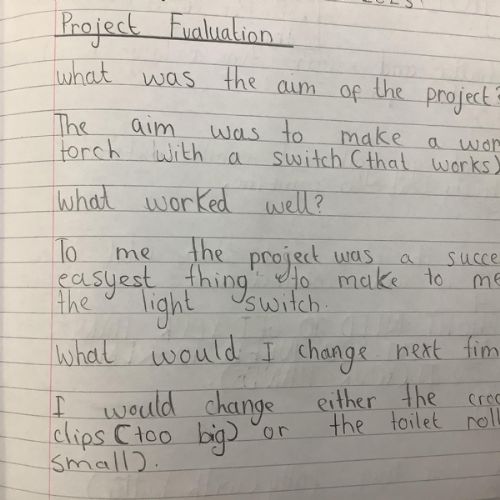 Project Evaluation
What was the aim of the project?
The aim was to make a
torch with a switch (that works)
What worked well?
To me the project was a
easyest thing to make to me
the light switch.
What would I change next
I would change either the
clips (too big) or the toilet roll
small).